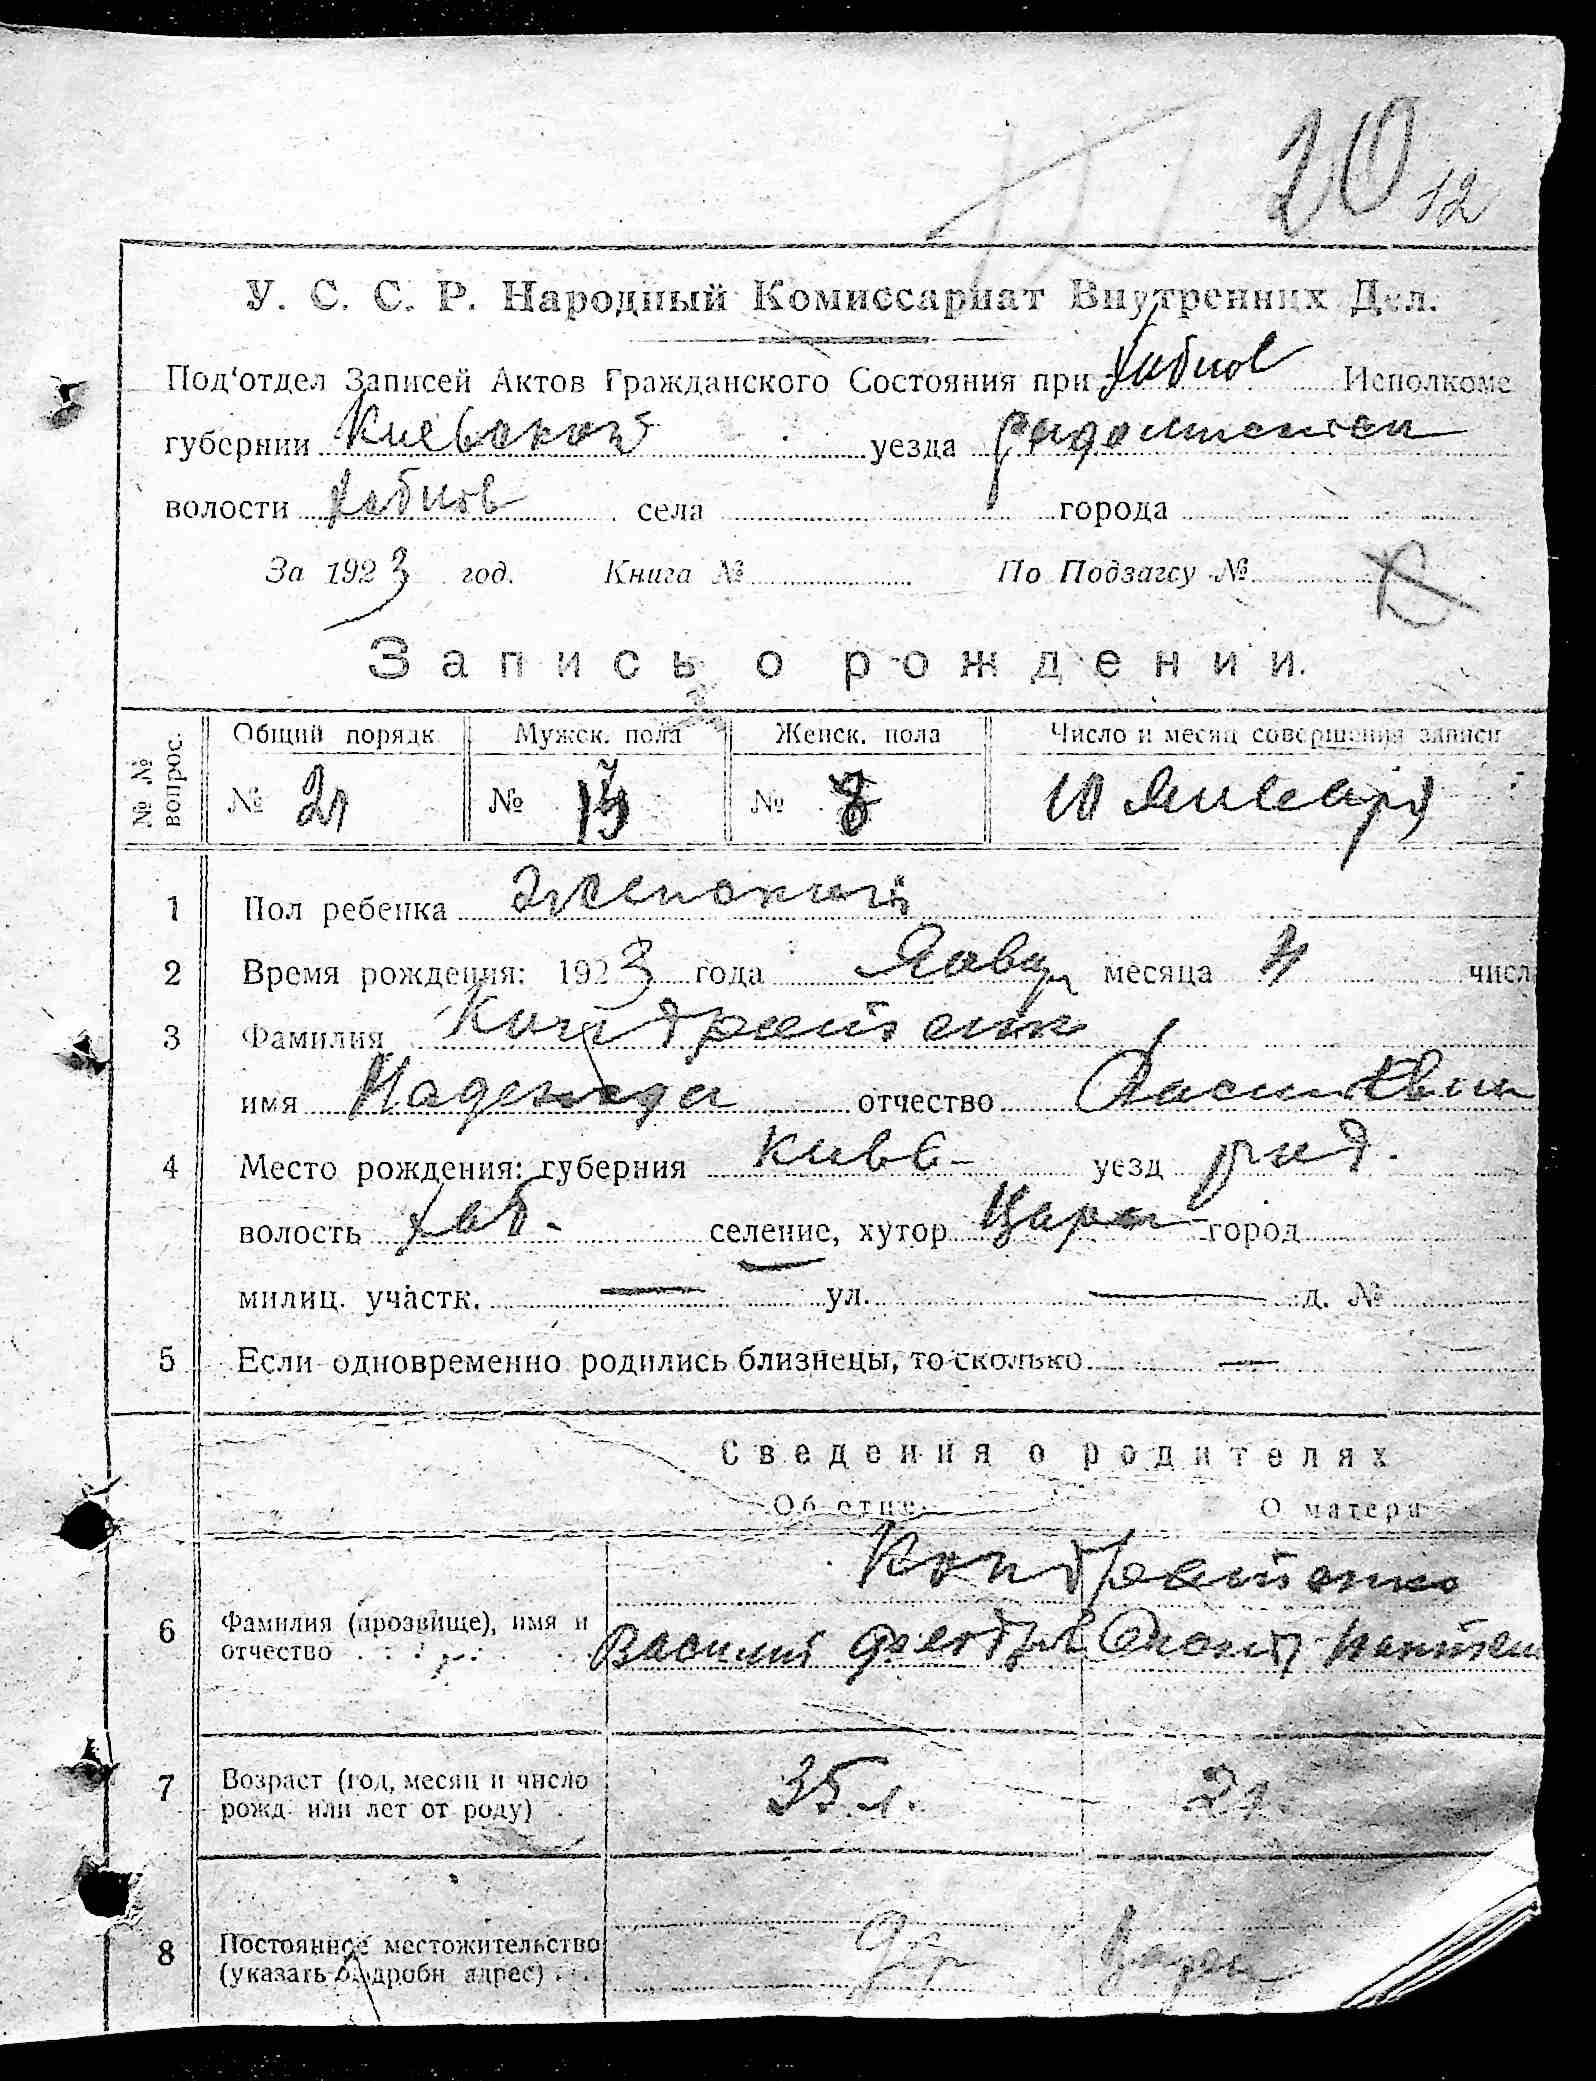 20 12
У. С. С. Р. Народный Комиссариат Внутренних Дел.
Под'отдел Записей Актов Гражданского Состояния при Хабнов Исполкоме
губернии Киевской уезда
волости Хабнов села города
За 1923 год. Книга № По Подзагсу №
Запись о рождении.
№ № вопрос. Общий порядк Мужск. пола Женск. пола Число и месяц совершения записи
№ 21 № 13 № 8 10 Января
1 Пол ребенка Женский
2 Время рождения: 1923 года месяца 4 числ
3 Фамилия Кондратенко
имя Надежда отчество
4 Место рождения: губерния Киев уезд рад.
волость Хаб. селение, хутор город
милиц. участк. — ул. — д. №
5 Если одновременно родились близнецы, то сколько —
Сведения о родителях
Об отце О матери
Кондратенко
6 Фамилия (прозвище), имя и отчество Василий
7 Возраст (год, месяц и число рожд или лет от роду) 35 л.
8 Постоянное местожительство (указать подробн адрес) дер